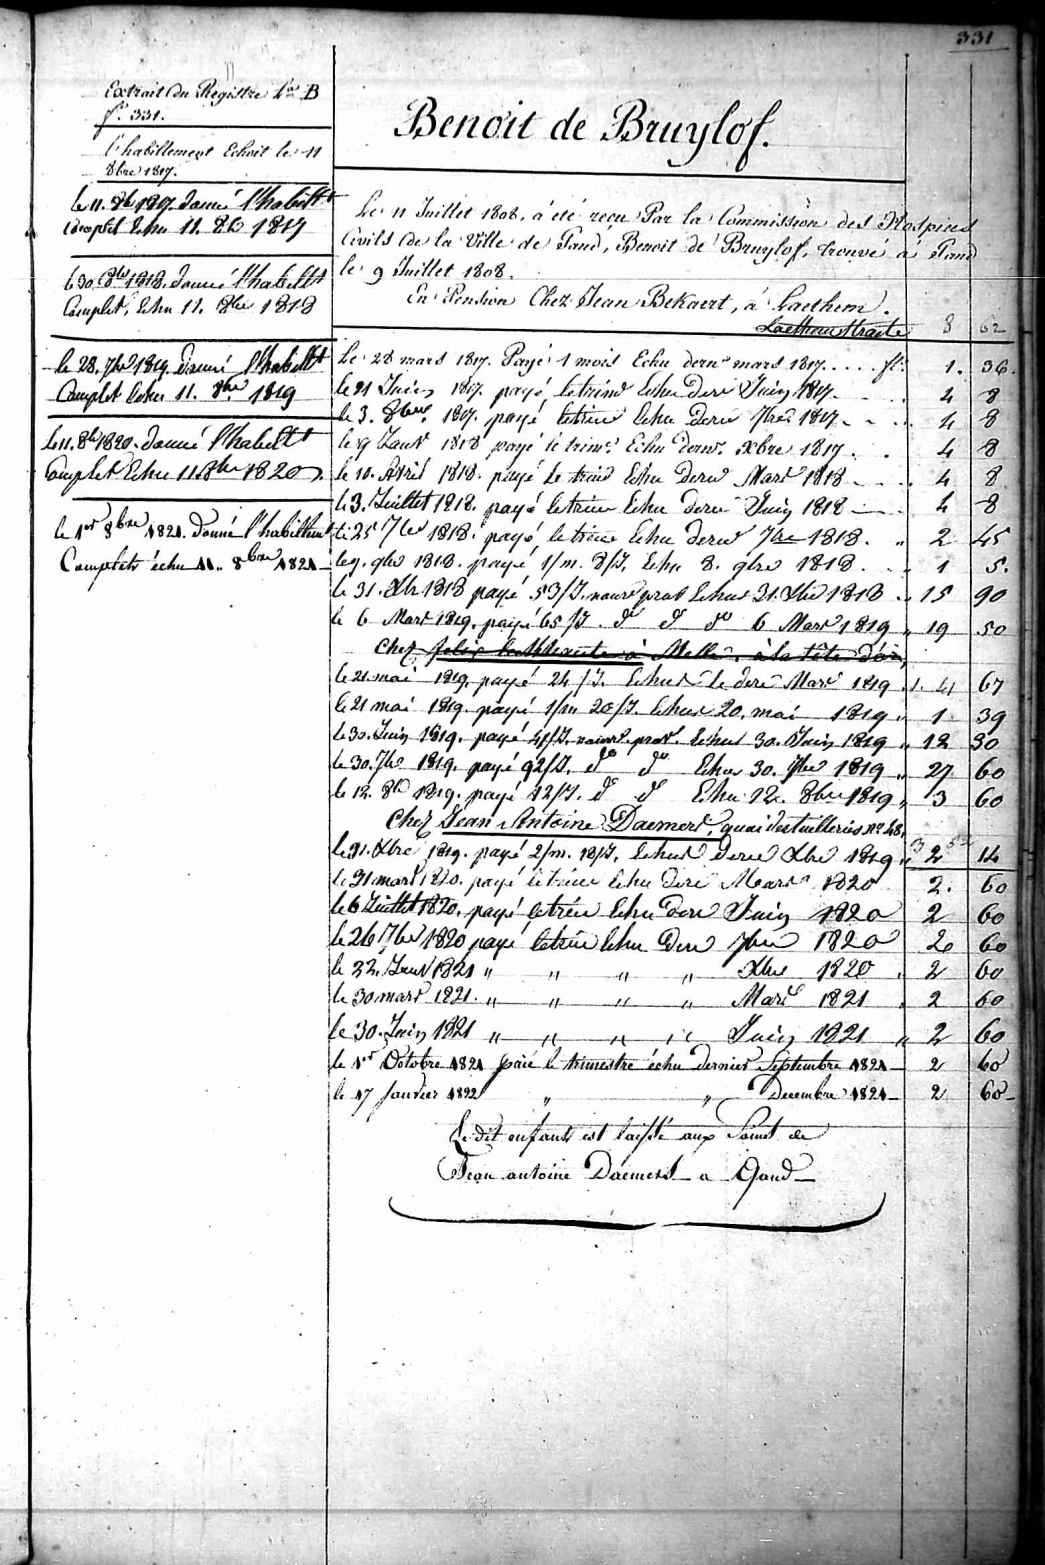 331
Extrait du Registre Lra B
f° 331.
l'habillement Echoit le 11
8bre 1817.
le 11. 8b 1817. donné l'habillt
Complet Echu 11. 8b 1817
le 30. 8b 1818. donné l'habillt
Complet, Echu 11. 8bre 1818
le 28. 7br 1819. Donné l'habillt
Complet Echu 11. 8br 1819
le 11. 8b 1820. donné l'habillt
Complet Echu 11. 8br 1820
le 1er 8bre 1821. Donné l'habillmt
Complets échu 11. 8bre 1821
Benoit de Bruylof.
Le 11 Juillet 1808, à été reçu Par la Commission des Hospices
Civils de la Ville de Gand, Benoit de Bruylof, trouvé à Gand
le 9 Juillet 1808.
En Pension Chez Jean Bekaert, à Laethem.
Laethem Straete 8 62
Le 28 mars 1817. Payé 1 mois Echu dernr mars 1817.... fl. 1. 36.
le 21 Juin 1817. payé le trim Echu Derr Juin 1817. 4 8
le 3. 8bre 1817. payé le trim Echu derr 7bre 1817. 4 8
le 9 Janv 1818 payé le trime Echu dernr. Xbre 1817. 4 8
le 10. Avril 1818. payé le trim Echu Derr Mars 1818 4 8
le 3. Juillet 1818. payé le trim Echu derr Juin 1818 4 8
le 25 7br 1818. payé, le trim Echu derr 7bre 1818. " 2 45
le 9. 9br 1818. payé 1/m. 8/J. Echu 8. 9bre 1818. 1 5.
le 31. Xbr 1818 payé 53/J. Echus 31. Xbr 1818 " 15 90
le 6 Mars 1819. payé 65/J. do do do 6 Mars 1819 " 19 50
Chez felix à Melle, à la tête d'or
le 21 mai 1819. payé 24/J. Echus le derr Mars 1819 1. 41 67
le 21 mai 1819. payé 1/m 20/J. Echus 20. mai 1819 " 1 39
le 30. Juin 1819. payé 41/J. Echus 30. Juin 1819 " 12 30
le 30. 7br 1819. payé 92/J. do do Echus 30. 7br 1819 " 27 60
le 12. 8b 1819. payé 12/J. do do Echu 12. 8bre 1819 " 3 60
Chez Jean Antoine Daemers, quai des tuilleries no 48.
le 31. Xbre 1819. payé 2/m. 18/J. Echus Derr Xbr 1819 " 2 14
le 31 mars 1820. payé le trim Echu derr Mars 1820 2. 60
le 6 Juillet 1820. payé le trim Echu derr Juin 1820 2 60
le 26 7br 1820 payé le trim Echu Derr 7bre 1820 2 60
le 22. Janv 1821 " " " " Xbre 1820 . 2 60
le 30 mars 1821. " " " " Mars 1821 . 2 60
le 30. Juin 1821 " " " " Juin 1821 " 2 60
le 1er Octobre 1821 paié le trimestre échu dernier Septembre 1821 2 60
le 17 Janvier 1822 " " Decembre 1821 2 60
Le dit enfant est laissé aux Soins de
Jean antoine Daemers a Gand